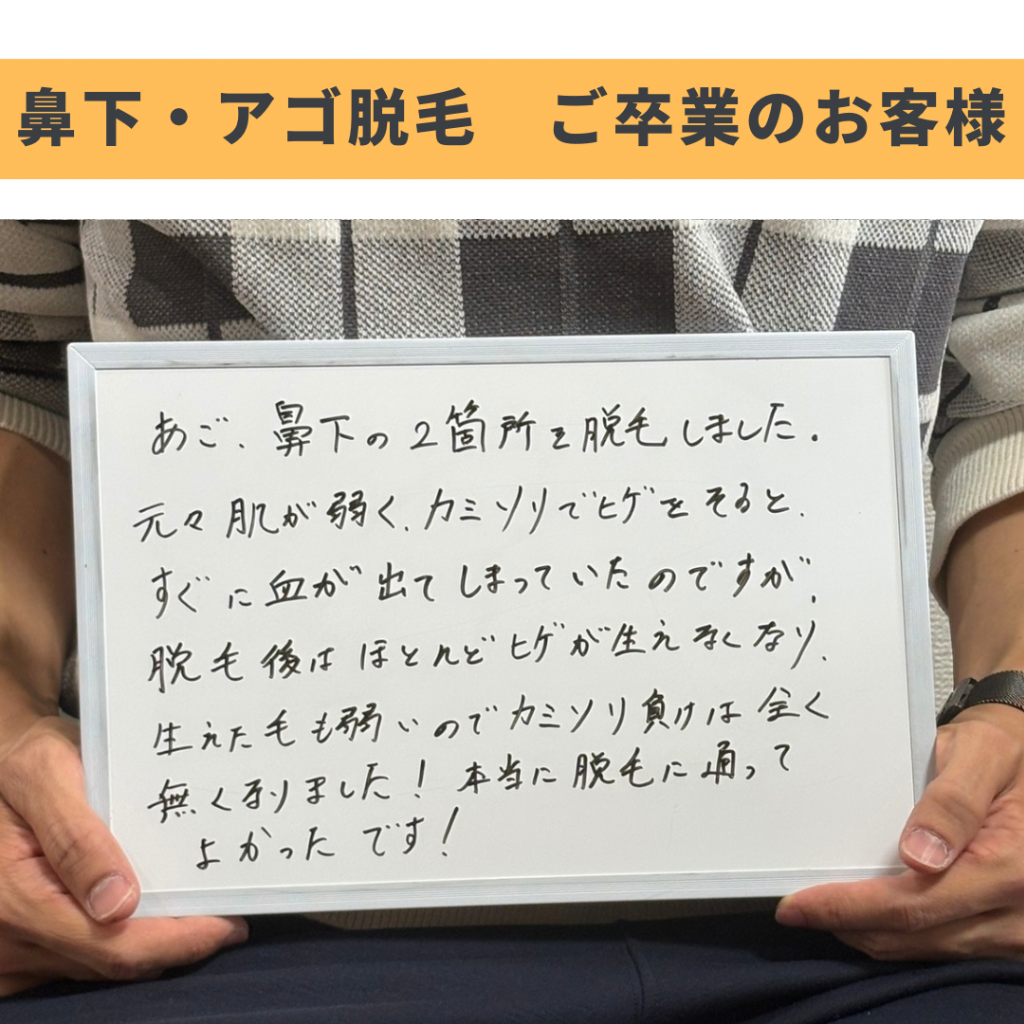 鼻下・アゴ脱毛　ご卒業のお客様
あご、鼻下の2箇所を脱毛しました。
元々肌が弱く、カミソリでヒゲをそると、
すぐに血が出てしまっていたのですが、
脱毛後はほとんどヒゲが生えなくなり、
生えた毛も弱いのでカミソリ負けは全く
無くなりました！本当に脱毛に通って
よかったです！